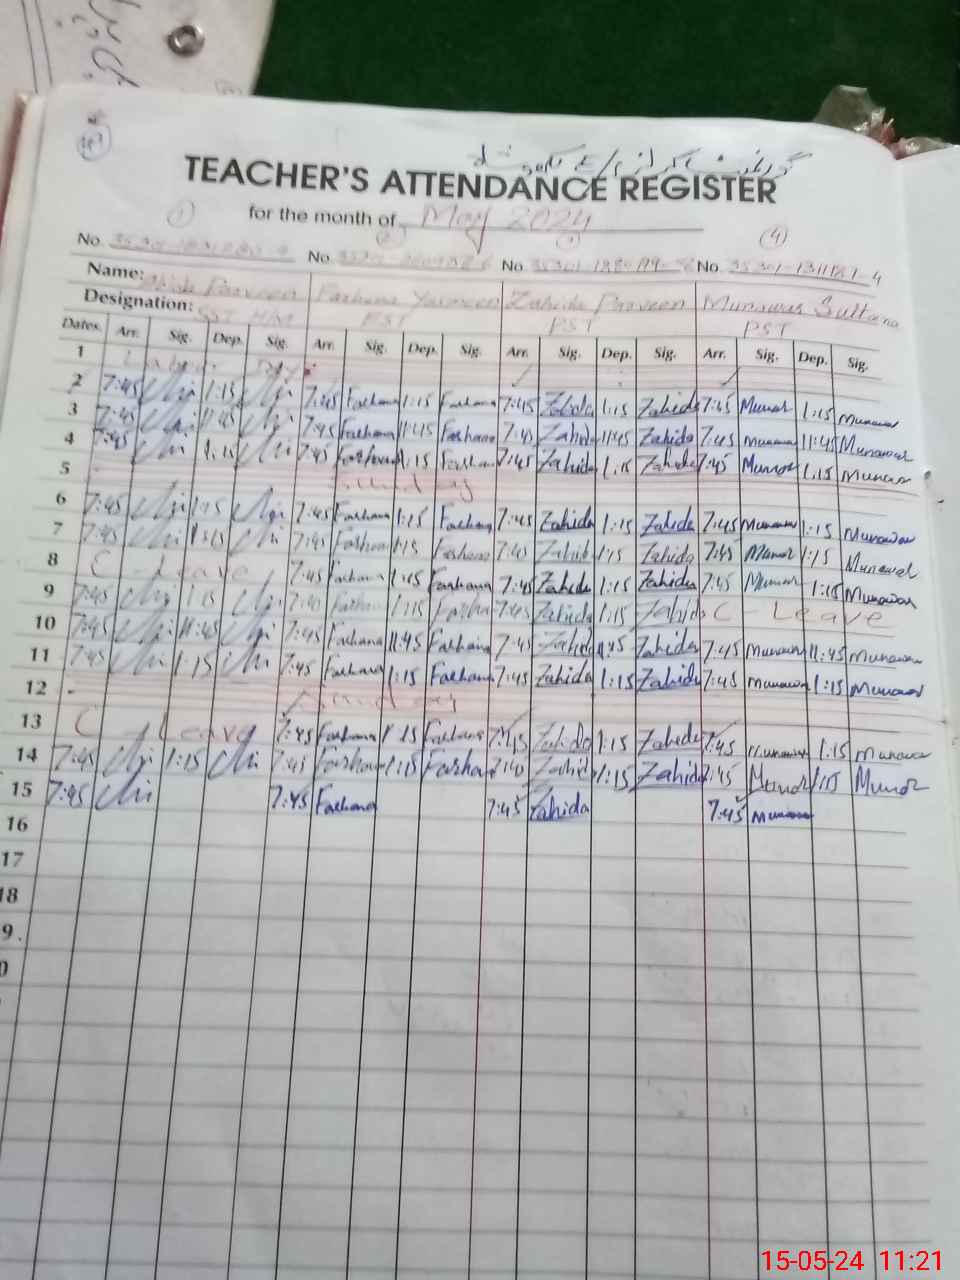 TEACHER'S ATTENDANCE REGISTER
for the month of May 2024
(1) (4)
No. No. No. No. 35301-1311181-4
Name: Parveen Farhana Yasmeen Zahida Parveen Munawar Sultana
Designation: SST PST PST PST
Dates. Arr. Sig. Dep. Sig. Arr. Sig. Dep. Sig. Arr. Sig. Dep. Sig. Arr. Sig. Dep. Sig.
1 Labour Day
2 7:45 1:15 7:45 Farhana 1:15 Farhana 7:45 Zahida 1:15 Zahida 7:45 Munawar 1:15 Munawar
3 7:45 11:45 7:45 Farhana 11:45 Farhana 7:45 Zahida 11:45 Zahida 7:45 Munawar 11:45 Munawar
4 7:45 1:15 7:45 Farhana 1:15 Farhana 7:45 Zahida 1:15 Zahida 7:45 Munawar 1:15 Munawar
5 Sunday
6 7:45 1:15 7:45 Farhana 1:15 Farhana 7:45 Zahida 1:15 Zahida 7:45 Munawar 1:15 Munawar
7 7:45 1:15 7:45 Farhana 1:15 Farhana 7:45 Zahida 1:15 Zahida 7:45 Munawar 1:15 Munawar
8 C - Leave 7:45 Farhana 1:15 Farhana 7:45 Zahida 1:15 Zahida 7:45 Munawar 1:15 Munawar
9 7:45 1:15 7:45 Farhana 1:15 Farhana 7:45 Zahida 1:15 Zahida C - Leave
10 7:45 11:45 7:45 Farhana 11:45 Farhana 7:45 Zahida 11:45 Zahida 7:45 Munawar 11:45 Munawar
11 7:45 1:15 7:45 Farhana 1:15 Farhana 7:45 Zahida 1:15 Zahida 7:45 Munawar 1:15 Munawar
12 Sunday
13 C Leave 7:45 Farhana 1:15 Farhana 7:45 Zahida 1:15 Zahida 7:45 Munawar 1:15 Munawar
14 7:45 1:15 7:45 Farhana 1:15 Farhana 7:45 Zahida 1:15 Zahida 7:45 Munawar 1:15 Munawar
15 7:45 7:45 Farhana 7:45 Zahida 7:45 Munawar
16
17
18
9.
0
15-05-24 11:21